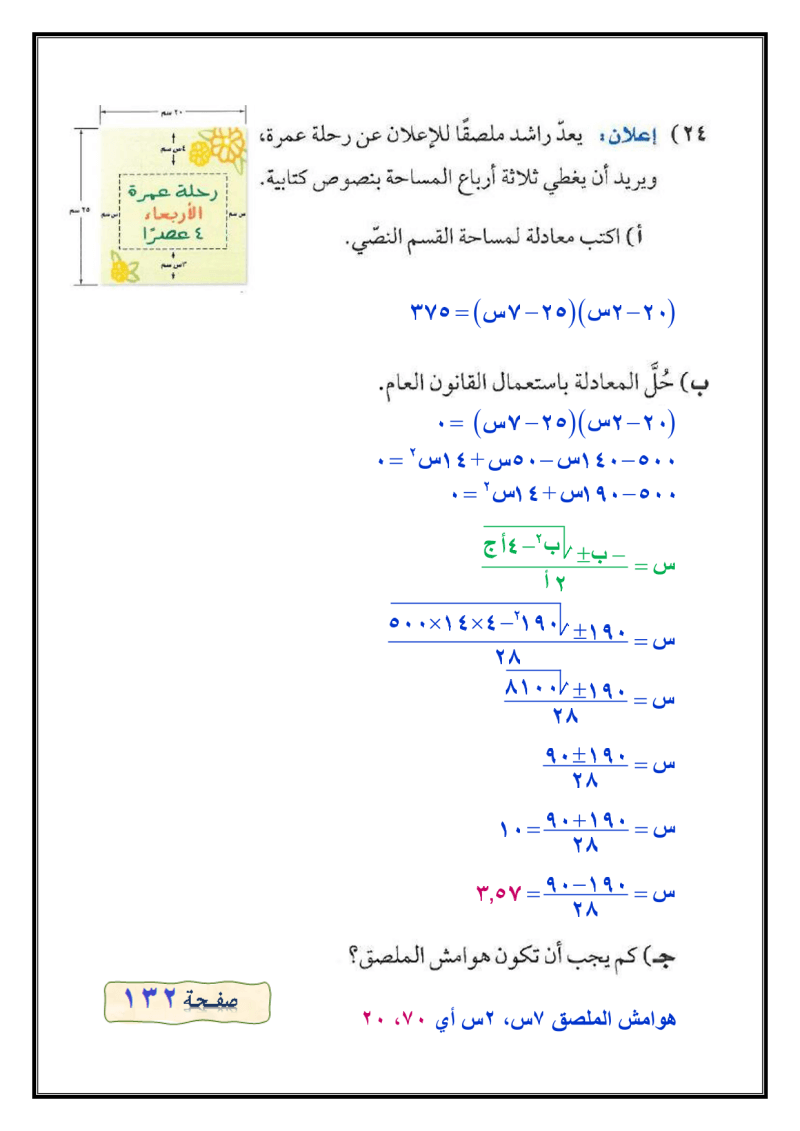 ٢٤) إعلان: يعدّ راشد ملصقًا للإعلان عن رحلة عمرة،
ويريد أن يغطي ثلاثة أرباع المساحة بنصوص كتابية.
٢٠ سم
٤س سم
٢٥ سم
س سم
رحلة عمرة
الأربعاء
٤ عصرًا
س سم
٣س سم
أ) اكتب معادلة لمساحة القسم النصّي.
(٢٠−٢س)(٢٥−٧س)=٣٧٥
ب) حُلَّ المعادلة باستعمال القانون العام.
(٢٠−٢س)(٢٥−٧س) =٠
٥٠٠−١٤٠س−٥٠س+١٤س٢=٠
٥٠٠−١٩٠س+١٤س٢=٠
س = (−ب±√(ب٢−٤أج))/(٢أ)
س = (١٩٠±√(١٩٠٢−٤×١٤×٥٠٠))/٢٨
س = (١٩٠±√٨١٠٠)/٢٨
س = (١٩٠±٩٠)/٢٨
س = (١٩٠+٩٠)/٢٨ =١٠
س = (١٩٠−٩٠)/٢٨ =٣,٥٧
جـ) كم يجب أن تكون هوامش الملصق؟
هوامش الملصق ٧س، ٢س أي ٧٠، ٢٠
صفحة ١٣٢